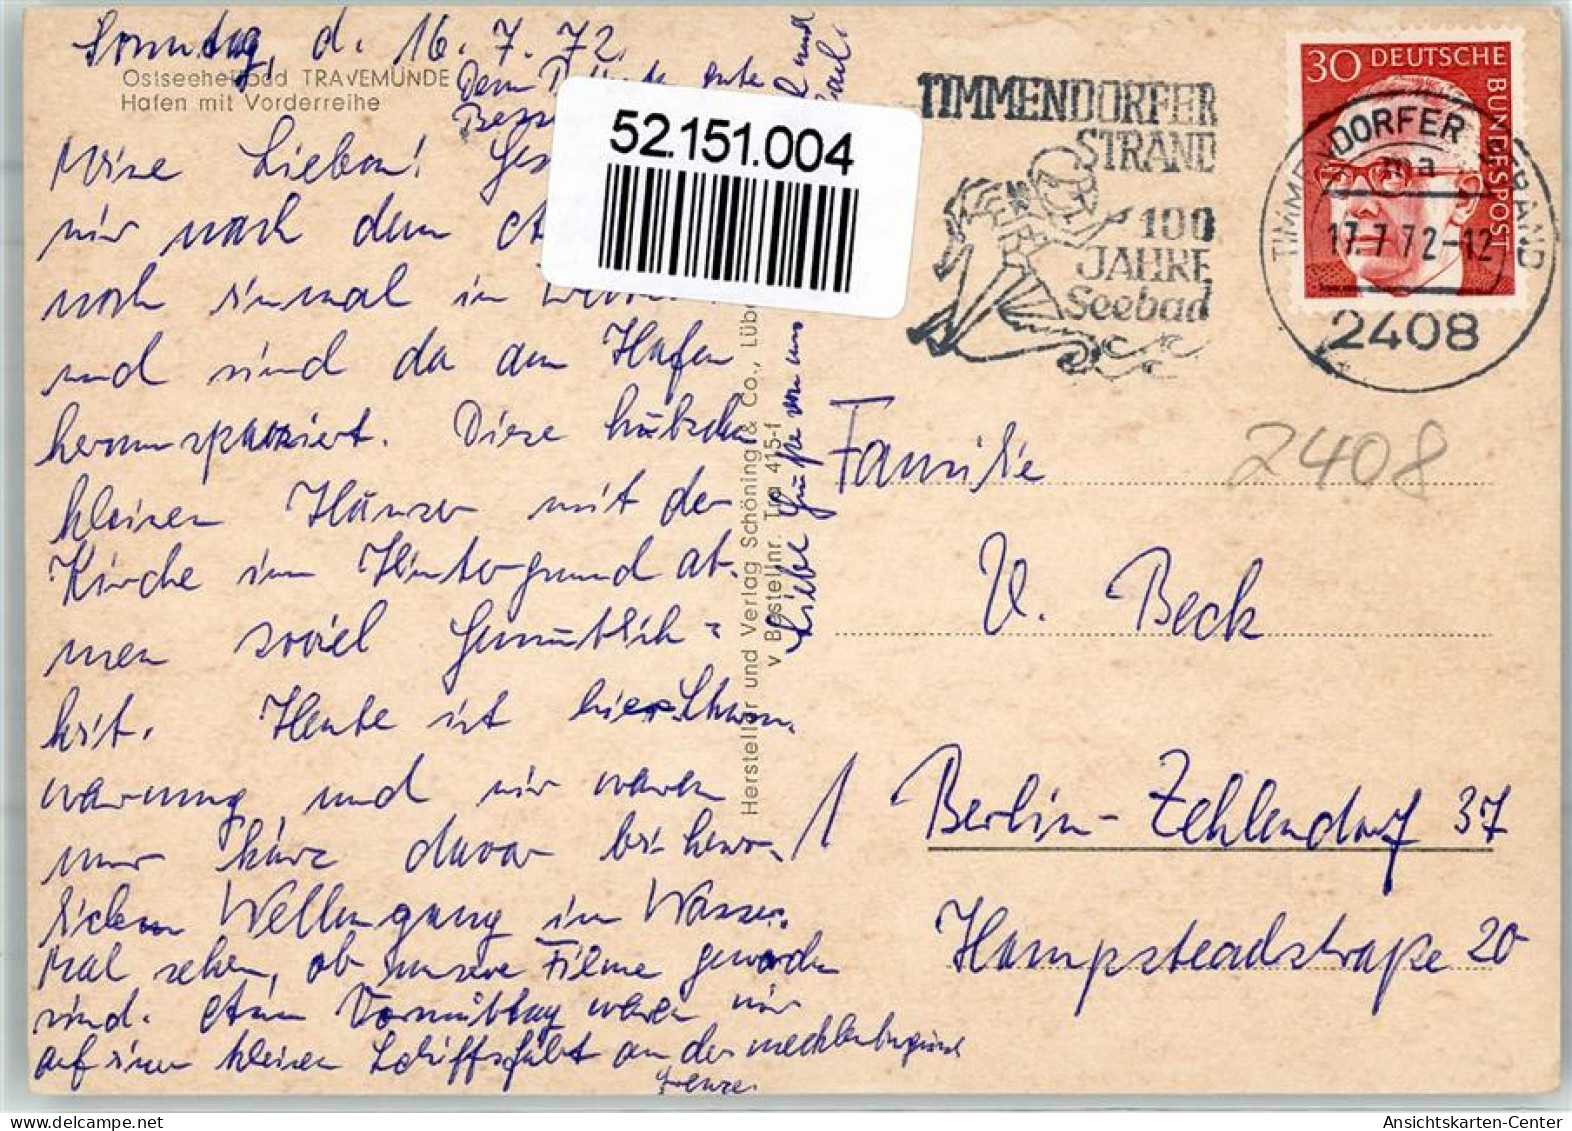 Sonntag, d. 16.7.72.
Ostseeheilbad TRAVEMÜNDE
Hafen mit Vorderreihe
gute
Meine Lieben!
wir nach dem
noch einmal in
und sind da am Hafen
herumspaziert. Diese hübschen
kleinen Häuser mit der
Kirche im Hintergrund at-
men soviel Gemütlich-
keit. Heute ist hier Sturm-
warnung und wir waren
nur kurz davor bei herr-
lichem Wellengang im Wasser.
Mal sehen, ob unsere Filme geworden
sind. Am Vormittag waren wir
auf einer kleinen Schiffsfahrt an der mecklenburgischen
Grenze.
Liebe Grüße von uns
und
Hersteller und Verlag Schöning & Co., Lüb
v Bestellnr. Tra 415-f
52.151.004
TIMMENDORFER
STRAND
100
JAHRE
Seebad
30 DEUTSCHE
BUNDESPOST
TIMMENDORFER STRAND
ma
17.7.72-12
2408
2408
Familie
V. Beck
1 Berlin-Zehlendorf 37
Hampsteadstraße 20
Ansichtskarten-Center